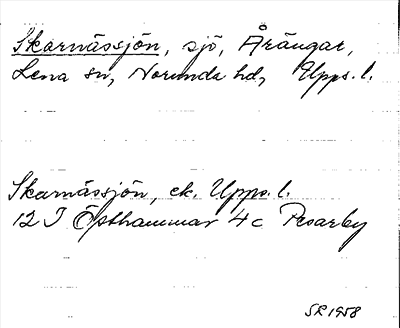 Skarnässjön, sjö, Årängar,
Lena sn, Norunda hd, Upps. l.
Skarnässjön, ek. Upps. l.
12 I Östhammar 4c Pesarby
SR 1958